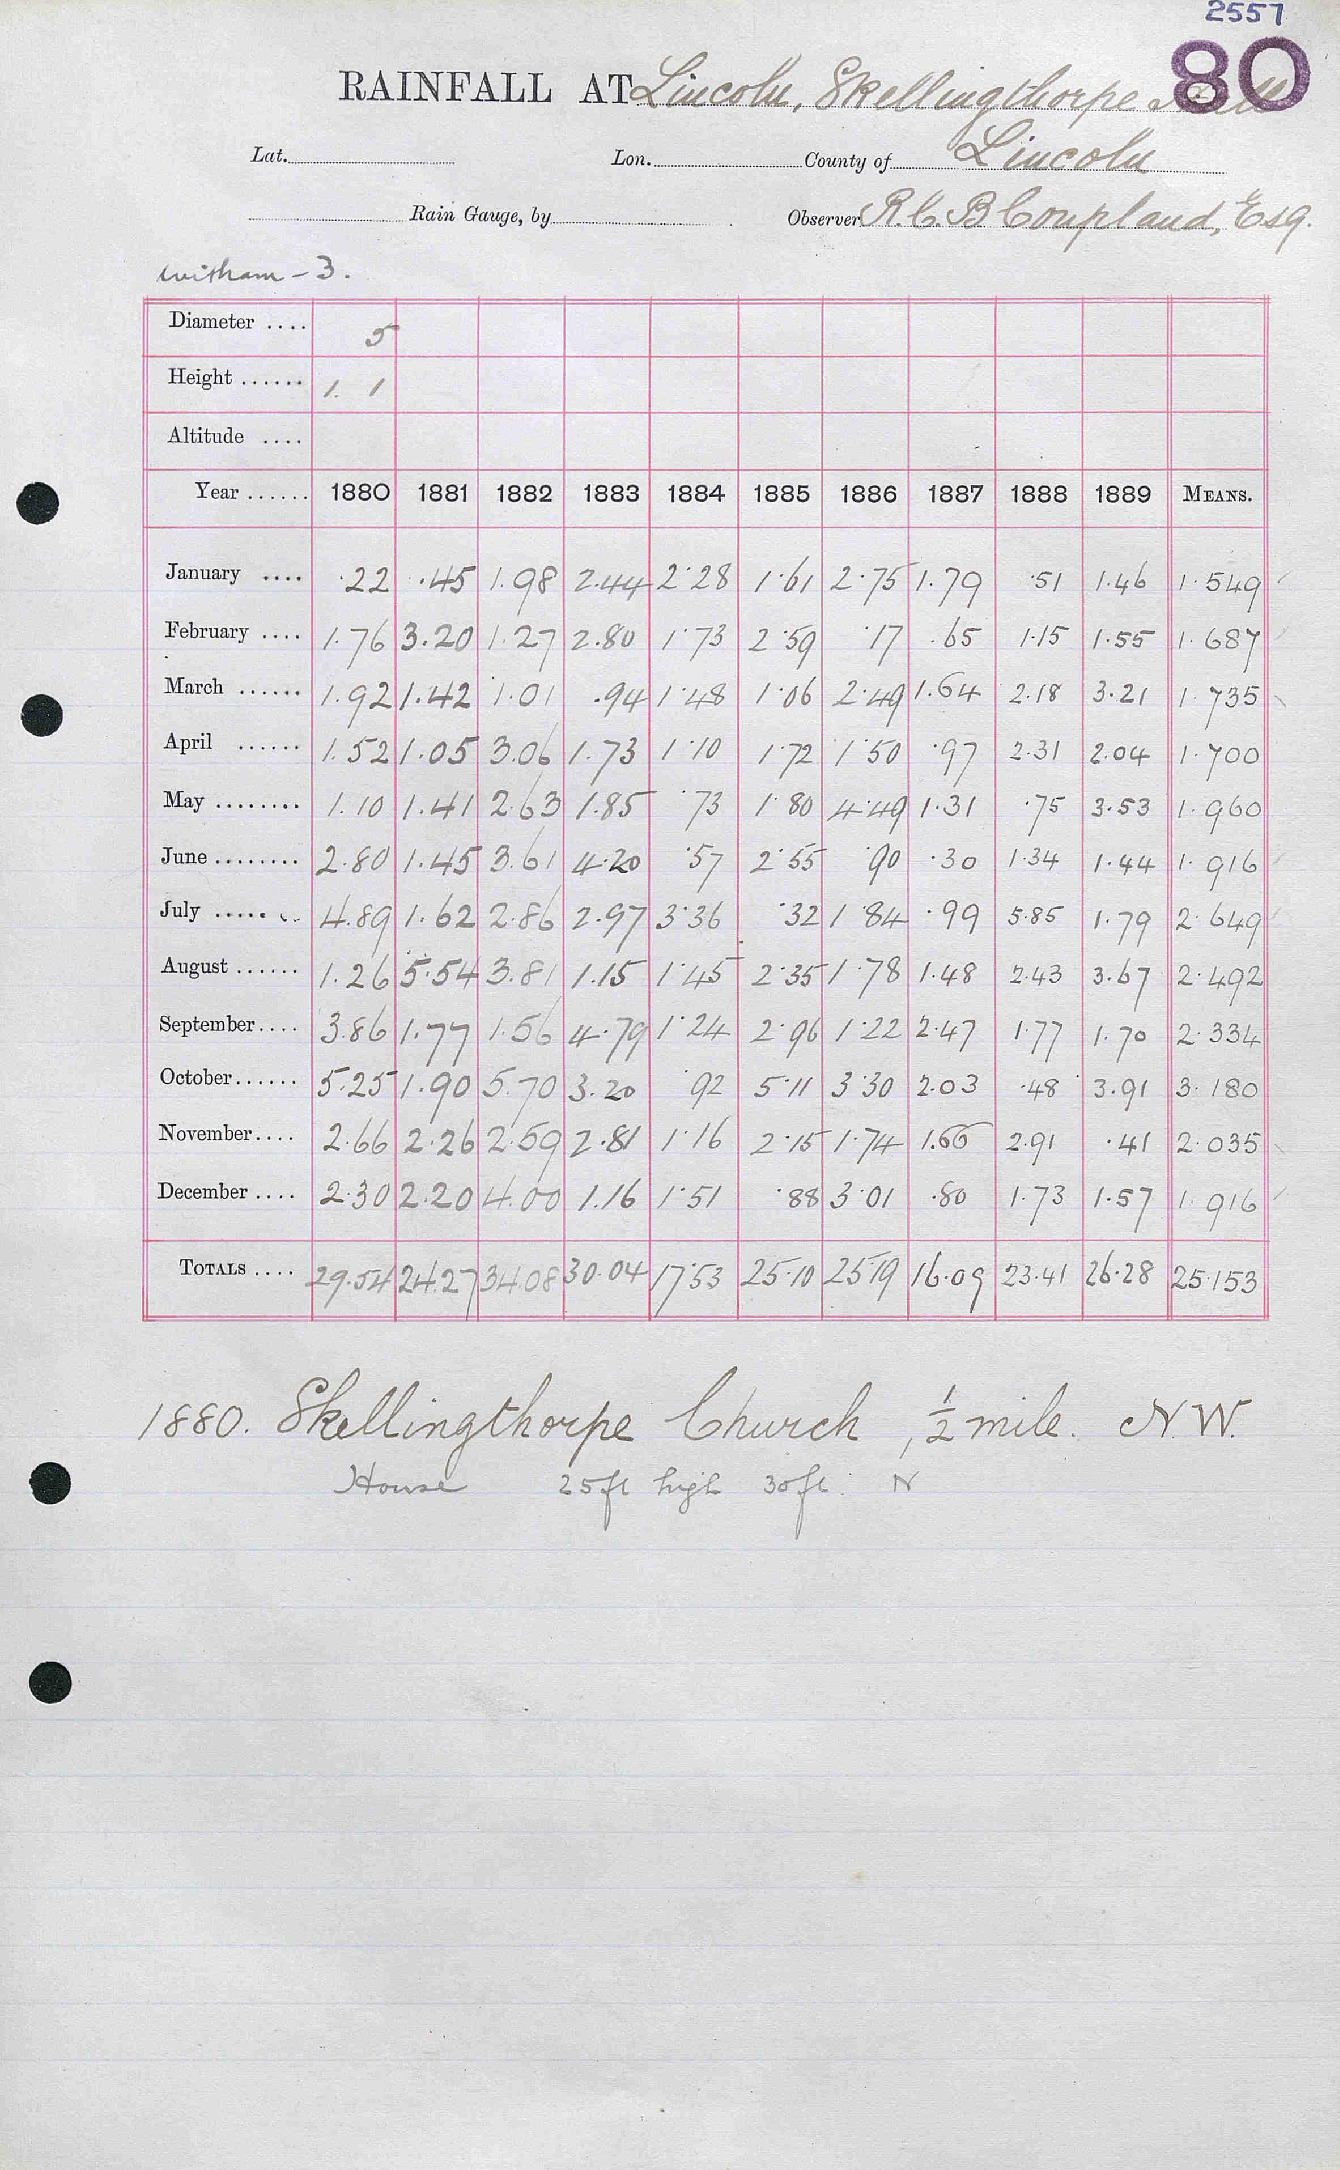 2557
80
RAINFALL AT Lincoln, Skellingthorpe
Lat. Lon. County of Lincoln
Rain Gauge, by Observer R. C. B Coupland, Esq.
Witham - 3.
Diameter .... 5
Height ...... 1. 1
Altitude ....
Year ...... 1880 1881 1882 1883 1884 1885 1886 1887 1888 1889 MEANS.
January .... .22 .45 1.98 2.44 2.28 1.61 2.75 1.79 .51 1.46 1.549
February .... 1.76 3.20 1.27 2.80 1.73 2.59 .17 .65 1.15 1.55 1.687
March ...... 1.92 1.42 1.01 .94 1.48 1.06 2.49 1.64 2.18 3.21 1.735
April ...... 1.52 1.05 3.06 1.73 1.10 1.72 1.50 .97 2.31 2.04 1.700
May ........ 1.10 1.41 2.63 1.85 .73 1.80 4.49 1.31 .75 3.53 1.960
June ........ 2.80 1.45 3.61 4.20 .57 2.55 .90 .30 1.34 1.44 1.916
July ........ 4.89 1.62 2.86 2.97 3.36 .32 1.84 .99 5.85 1.79 2.649
August ...... 1.26 5.54 3.81 1.15 1.45 2.35 1.78 1.48 2.43 3.67 2.492
September.... 3.86 1.77 1.56 4.79 1.24 2.96 1.22 2.47 1.77 1.70 2.334
October...... 5.25 1.90 5.70 3.20 .92 5.11 3.30 2.03 .48 3.91 3.180
November.... 2.66 2.26 2.59 2.81 1.16 2.15 1.74 1.66 2.91 .41 2.035
December .... 2.30 2.20 4.00 1.16 1.51 .88 3.01 .80 1.73 1.57 1.916
TOTALS .... 29.54 24.27 34.08 30.04 17.53 25.10 25.19 16.09 23.41 26.28 25.153
1880. Skellingthorpe Church, 1/2 mile. N.W.
House 25ft high 30ft. N